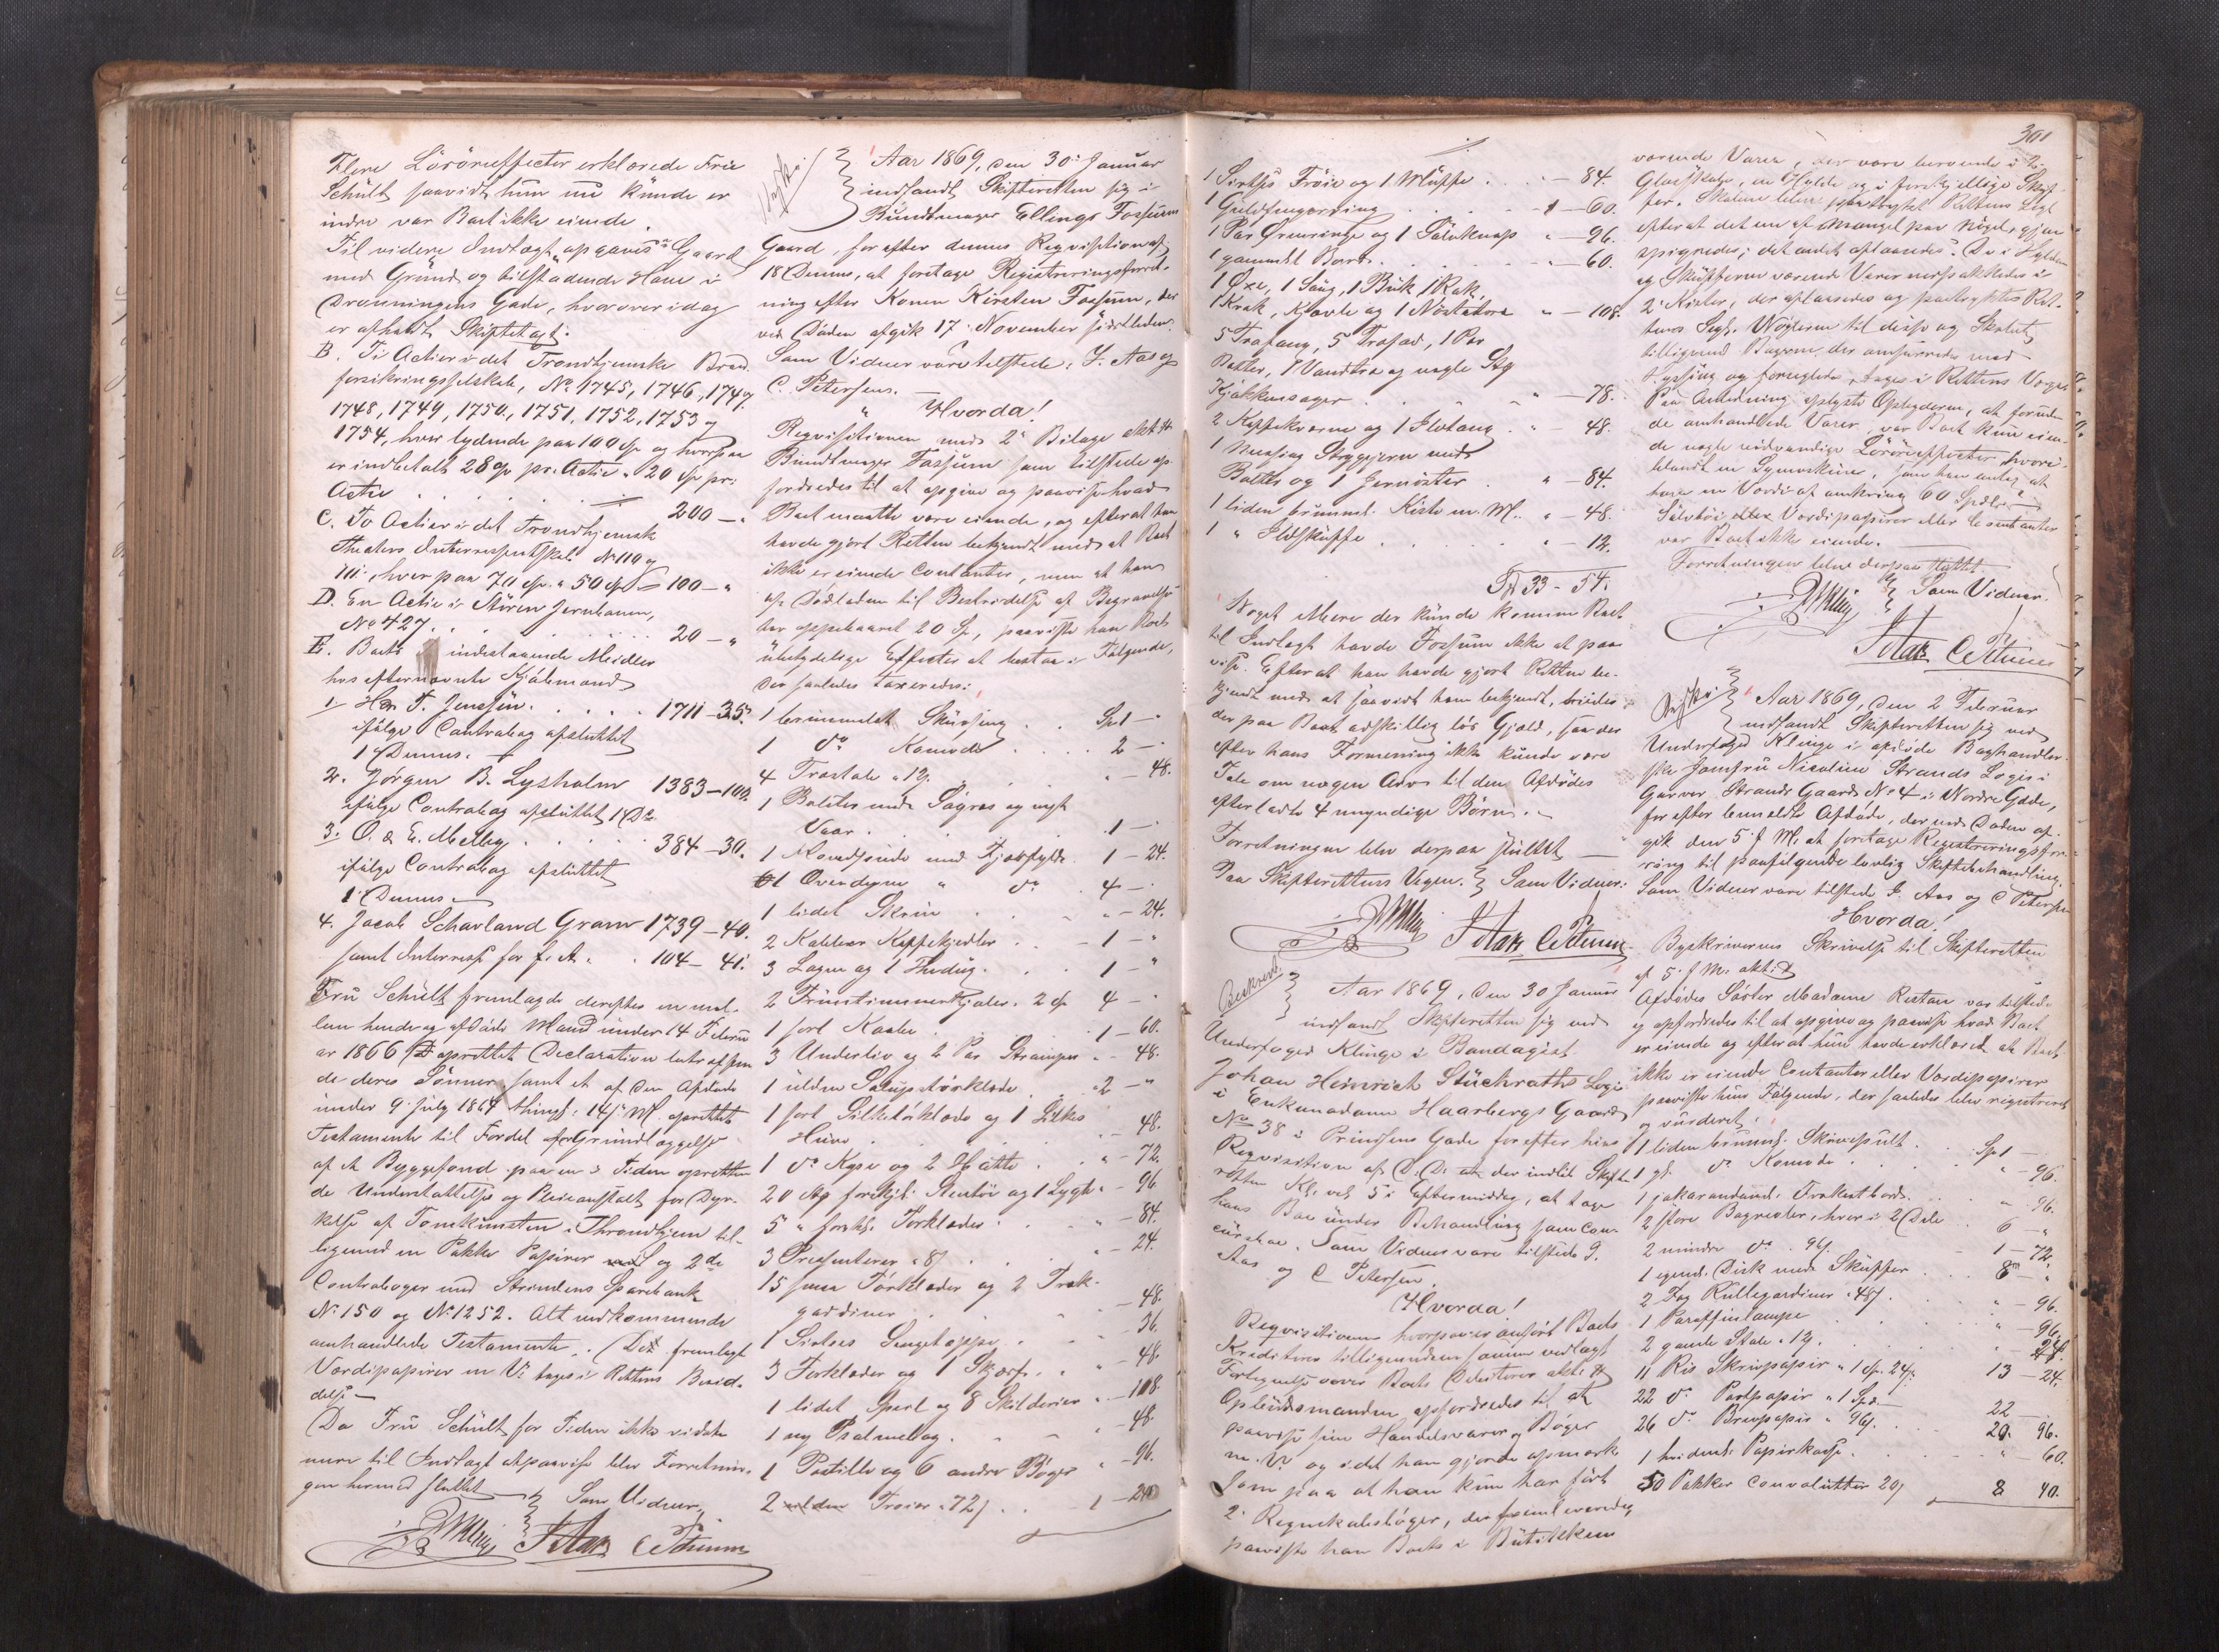 Flere Løsøreeffecter erklærede Frue
Schült saavidt hun nu kunde er
indre var Boet ikke eiende.
Til videre Indtægt opgaves Gaard
med Grund og tilstødende Have i
Dronningens Gade, hvorover idag
er afholdt Skiftetaxt.
B. Ti Actier i det Trondhjemske Brand
forsikringsselskab, No 1745, 1746, 1747,
1748, 1749, 1750, 1751, 1752, 1753 og
1754, hver lydende paa 100 Sp og hvorpaa
er indbetalt 28 Sp pr. Actie a 20 Sp pr.
Actie . . . 200 — "
C. To Actier i det Trondhjemske
Theaters Interessentskab No 110 og
111, hver paa 70 Sp. a 50 Sp = 100 — "
D. En Actie i Støren Jernbanen,
No 427. . . . 20 — "
E. Boets indestaaende Midler
hos efternævnte Kjøbmænd
1. Hr. F. Jenssen . . . 1711 — 35.
ifølge Contrabog afsluttet
1 Dennes.
2. Jørgen B. Lysholm 1383 — 100.
ifølge Contrabog afsluttet 1 Ds.
3. O. & E. Mellbye . . . 384 — 30.
ifølge Contrabog afsluttet
1 Dennes
4. Jacob Schavland Gram 1739 — 40.
samt Interesse for f. A. . . 104 — 41.
Fru Schült fremlagde derefter en mel-
lem hende og afdøde Mand under 14 Febru
ar 1866 oprettet Declaration
de deres Sønner samt et af den Afdøde
under 9 July 1864 thingl: 14 s. M. oprettet
Testamente til Fordel for Grundlæggelse
af et Byggefond paa en i Tiden oprettende
de Understøttelse og Pleieanstalt for Dyr-
kelse af Tonekunsten i Throndhjem til-
ligemed en Pakke Papirer og 2de
Contrabøger med Strindens Sparebank
No 150 og No 1252. Alt vedkommende
omhandlede Testamente. (De fremlagt
Værdipapirer m. V. tages i Rettens Besid-
delse —
(Da Fru Schült for Tiden ikke vidste
mere til Indtægt at paavise blev Forretnin-
gen hermed sluttet
Som Vidner
J Aas C Petersen
Aar 1869, den 30. Januar
indfandt Skifteretten sig i
Bundtmager Ellings Fossums
Gaard, for efter dennes Requisition af
18 Dennes, at foretage Registreringsforret-
ning efter Konen Kirsten Fossum, der
ved Døden afgik 17. November sidstleden.
Som Vidner vare tilstede: J. Aas og
C. Petersen.
Hvorda!
Requisitionen med 2de Bilage akt:
Bundtmager Fossum som tilstede op-
fordredes til at opgive og paavise hvad
Boet maatte være eiende, og efterat han
havde gjort Retten bekjendt med at Boet
ikke er eiende Contanter, men at han
af Dødladen til Bestridelse af Begravelse
har oppebaaret 20 Sp, paaviste han Boets
ubetydelige Effecter at bestaa i Følgende,
der saaledes taxeredes:
1 brunmalet Skuvseng . . Sp 1 — "
1 do Komode . . . 2 — "
4 Træstole a 12 . . . " — 48.
1 Bolster med Søgræs og nyt
Vaar . . . 1 —
1 Hovedpude med Fjærfylde . 1 — 24.
1 Overdyne " do . 4 — "
1 lidet Skrin . . . " — 24.
2 Kobber Kaffekjedler . . — 1 — "
3 Lagen og 1 Thedug . . 1 — "
2 Fruentimmer Kjoler a 2 Sp 4 — "
1 sort Kaabe . . . 1 — 60.
3 Underliv og 2 Par Strømper " — 48.
1 ulden Saugstørklæde . . 2 — "
1 sort Silketørklæde og 1 Silkes
Hue . . . — 48.
1 do Kyse og 2 Hætte . . " — 72.
20 Stp forskjel: Stentøi og 1 Lygte " — 96
5 " forskj. Forklæder . . " — 84.
3 Presenterer a 8 . . . " — 24.
15 smaa Tørklæder og 2 Træk-
gardiner . . . " — 48.
1 Sirtses Sengetæppe . . " — 36.
3 Forklæder og 1 Skjærf . . " — 48.
1 lidet Speil og 8 Skilderier " — 108.
1 ny Psalmebog . . . " — 48.
1 Postille og 6 andre Bøger " — 96.
2 Trøier a 72 . . . 1 — 24
1 Sirtses Trøie og 1 Muffe . . . — 84.
1 Guldfingerring . . . 1 — 60.
1 Par Ørenringe og 1 Sølvknap " — 96.
1 gammelt Bord . . . " — 60.
1 Øxe, 1 Saug, 1 Buk, 1 Rok,
1 Krak, Kjævle og 1 " — 108.
5 Træfang, 5 Træfad, 1 Par
Bøtter, 1 Vandtræ og nogle Stp
Kjøkkensager . . . " — 78.
2 Kaffekværne og 1 Ildtang . " — 48.
1 Messing Strygejern med
Bolter og 1 Jernrister . . " — 84.
1 liden brunmal. Kiste m. M. . " — 48.
1 " Ildskuffe . . . " — 12.
Sp 33 — 54.
Noget Mere der kunde komme Boet
til Indtægt havde Fossum ikke at paa-
vise. Efterat han havde gjort Retten be-
kjendt med at saavidt ham bekjendt, hviler
der paa Boet adskillig løs Gjæld, saa der
efter hans Formening ikke kunde være
Tale om nogen Arv til den Afdødes
efterladte 4 umyndige Børn. —
Forretningen blev derpaa sluttet —
Paa Skifterettens Vegne. Som Vidner:
J Aas C Petersen
Beskrevet.
Aar 1869, den 30 Januar
indfandt Skifteretten sig ved
Underfoged Klinge i Bandagist
Johan Heinrich Stückraths Logi
i Enkemadame Haarbergs Gaard
No 38 i Prindsens Gade for efter hans
Requisition af D. D. der indløb Skifte-
retten Kl. vel 5 i Eftermiddag, at tage
hans Boe under Behandling som Con-
cursboe. Som Vidner vare tilstede J.
Aas og C Petersen.
Hvorda!
Requisitionen hvorpaa er anført Boets
Kreditorer tilligemed en samme vedlagt
Fortegnelse over Boets Debitorer akt:
Opbudsmanden opfordredes til at
paavise sine Handelsvarer, Bøger
m. V. og idet han gjorde opmærk
som paa at han kun har ført
2de Regnskabsbøger, der fremleveredes,
paaviste han Boets i Butikken
301
værende Varer, der vare beroende i 2
Glasskabe, en Hylde og i forskjellige Skuf-
fer. Skabene blev paatrykt Rettens Segl
efterat det ene af Mangel paa Nøgel, gjen
spigredes; det andet aflaasedes. De i Hylden
og Skufferne værende Varer nedpakkedes i
2 Kister, der aflaasedes og paatryktes Ret-
tens Segl. Nøglerne til disse og Skabet
tilligemed Bøgerne, der omsurredes med
Hyssing og forseglede, toges i Rettens Værge
Paa Anledning oplyste Opbyderen, at foruden
de omhandlede Varer, var Boet kun eien-
de nogle nødvendige Løsøreeffecter hvori-
blandt en Symaskine, som han antog at
have en Værdi af omkring 60 Spdlr.
Sølvtøi eller Værdipapirer eller Contanter
var Boet ikke eiende.
Forretningen blev derpaa sluttet.
Som Vidner.
J Aas C Petersen
Aar 1869, den 2 Februar
indfandt Skifteretten sig ved
Underfoged Klinge i afdøde Boghandler-
ske Jomfru Nicoline Strands Logis i
Garver Strands Gaard No 4 i Nordre Gade,
for efter bemeldte Afdøde, der ved Døden af-
gik den 5 f. M. at foretage Registreringsfor-
rening til paafølgende lovlig Skiftebehandling.
Som Vidner vare tilstede J. Aas og C Petersen
Hvorda!
Byskriverens Skrivelse til Skifteretten
af 5 f M. akt:
Afdødes Søster Madame Restan var tilstede
og opfordredes til at opgive og paavise hvad Boet
er eiende og efterat hun havde erklæret at Boet
ikke er eiende Contanter eller Værdipapirer
paaviste hun Følgende, der saaledes blev registreret
og vurderet:
1 liden brunmal. Skrivepult . . Sp 1 —
1 gl. do Komode . . . " — 96.
1 jakarandamal. Trækastbord . . " — 96.
2 store Bogreoler, hver i 2 Dele . 6 — "
2 mindre do a 96 . . — 1 — 72.
1 egemal. Disk med Skuffer . . 8 — "
2 Fag Rullegardiner a 48 . . " — 96.
1 Paraffinlampe . . . " — 96.
2 gamle Stole a 12 . . . " — 24.
11 Ris Skrivpapir a 1 Sp. 24 . 13 — 24.
22 do Postpapir a 1 Spd. — 22 — .
26 do Brevpapir a 96 . . 20. 96.
1 hvidmal. Papirkasse . . . " — 60.
50 Pakker Convolutter 20 8 40.